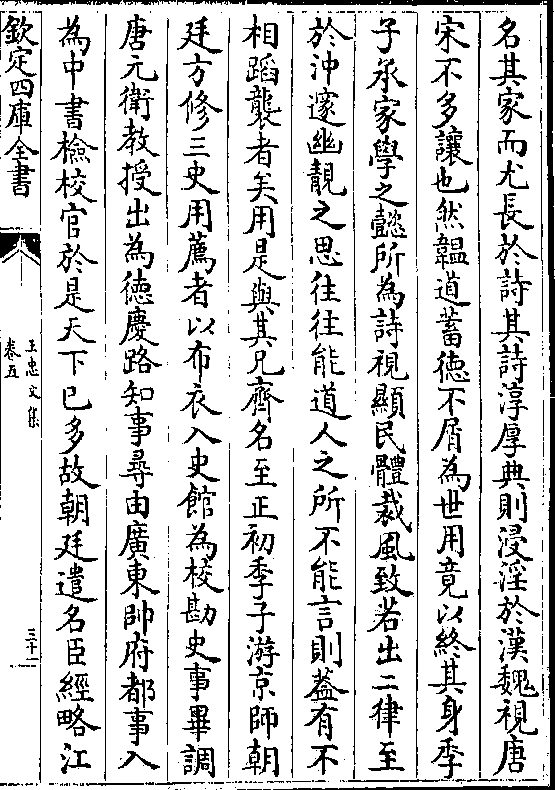 名其家而尤長於詩其詩淳厚典則浸淫於漢魏視唐
宋不多讓也然韞道蓄德不屑為世用竟以終其身季
子承家學之懿所為詩視顯民體裁風致若出二律至
於沖邃幽靚之思往往能道人之所不能言則葢有不
相蹈襲者矣用是與其兄齊名至正初季子游京師朝
廷方修三史用薦者以布衣入史館為校勘史事畢調
唐元衛教授出為德慶路知事尋由廣東帥府都事入
為中書檢校官於是天下已多故朝廷遣名臣經略江
欽定四庫全書
王忠文集
卷五
三十一